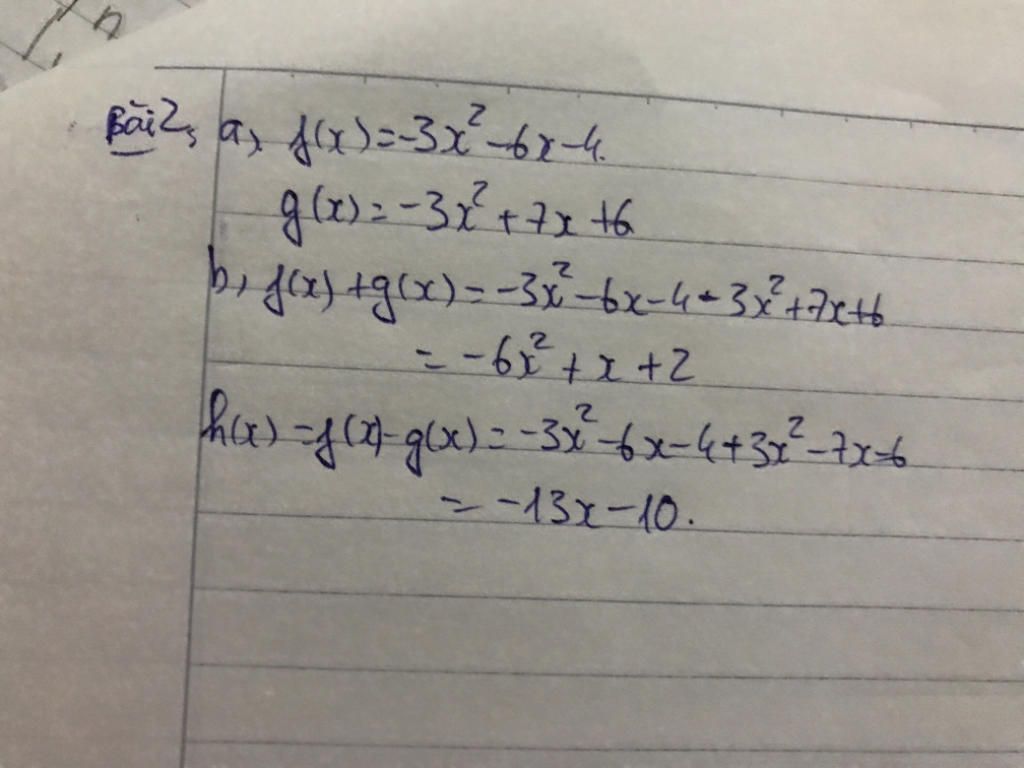 Bài 2, a, f(x) = -3x² - 6x - 4.
g(x) = -3x² + 7x + 6
b, f(x) + g(x) = -3x² - 6x - 4 - 3x² + 7x + 6
= -6x² + x + 2
h(x) = f(x) - g(x) = -3x² - 6x - 4 + 3x² - 7x - 6
= -13x - 10.